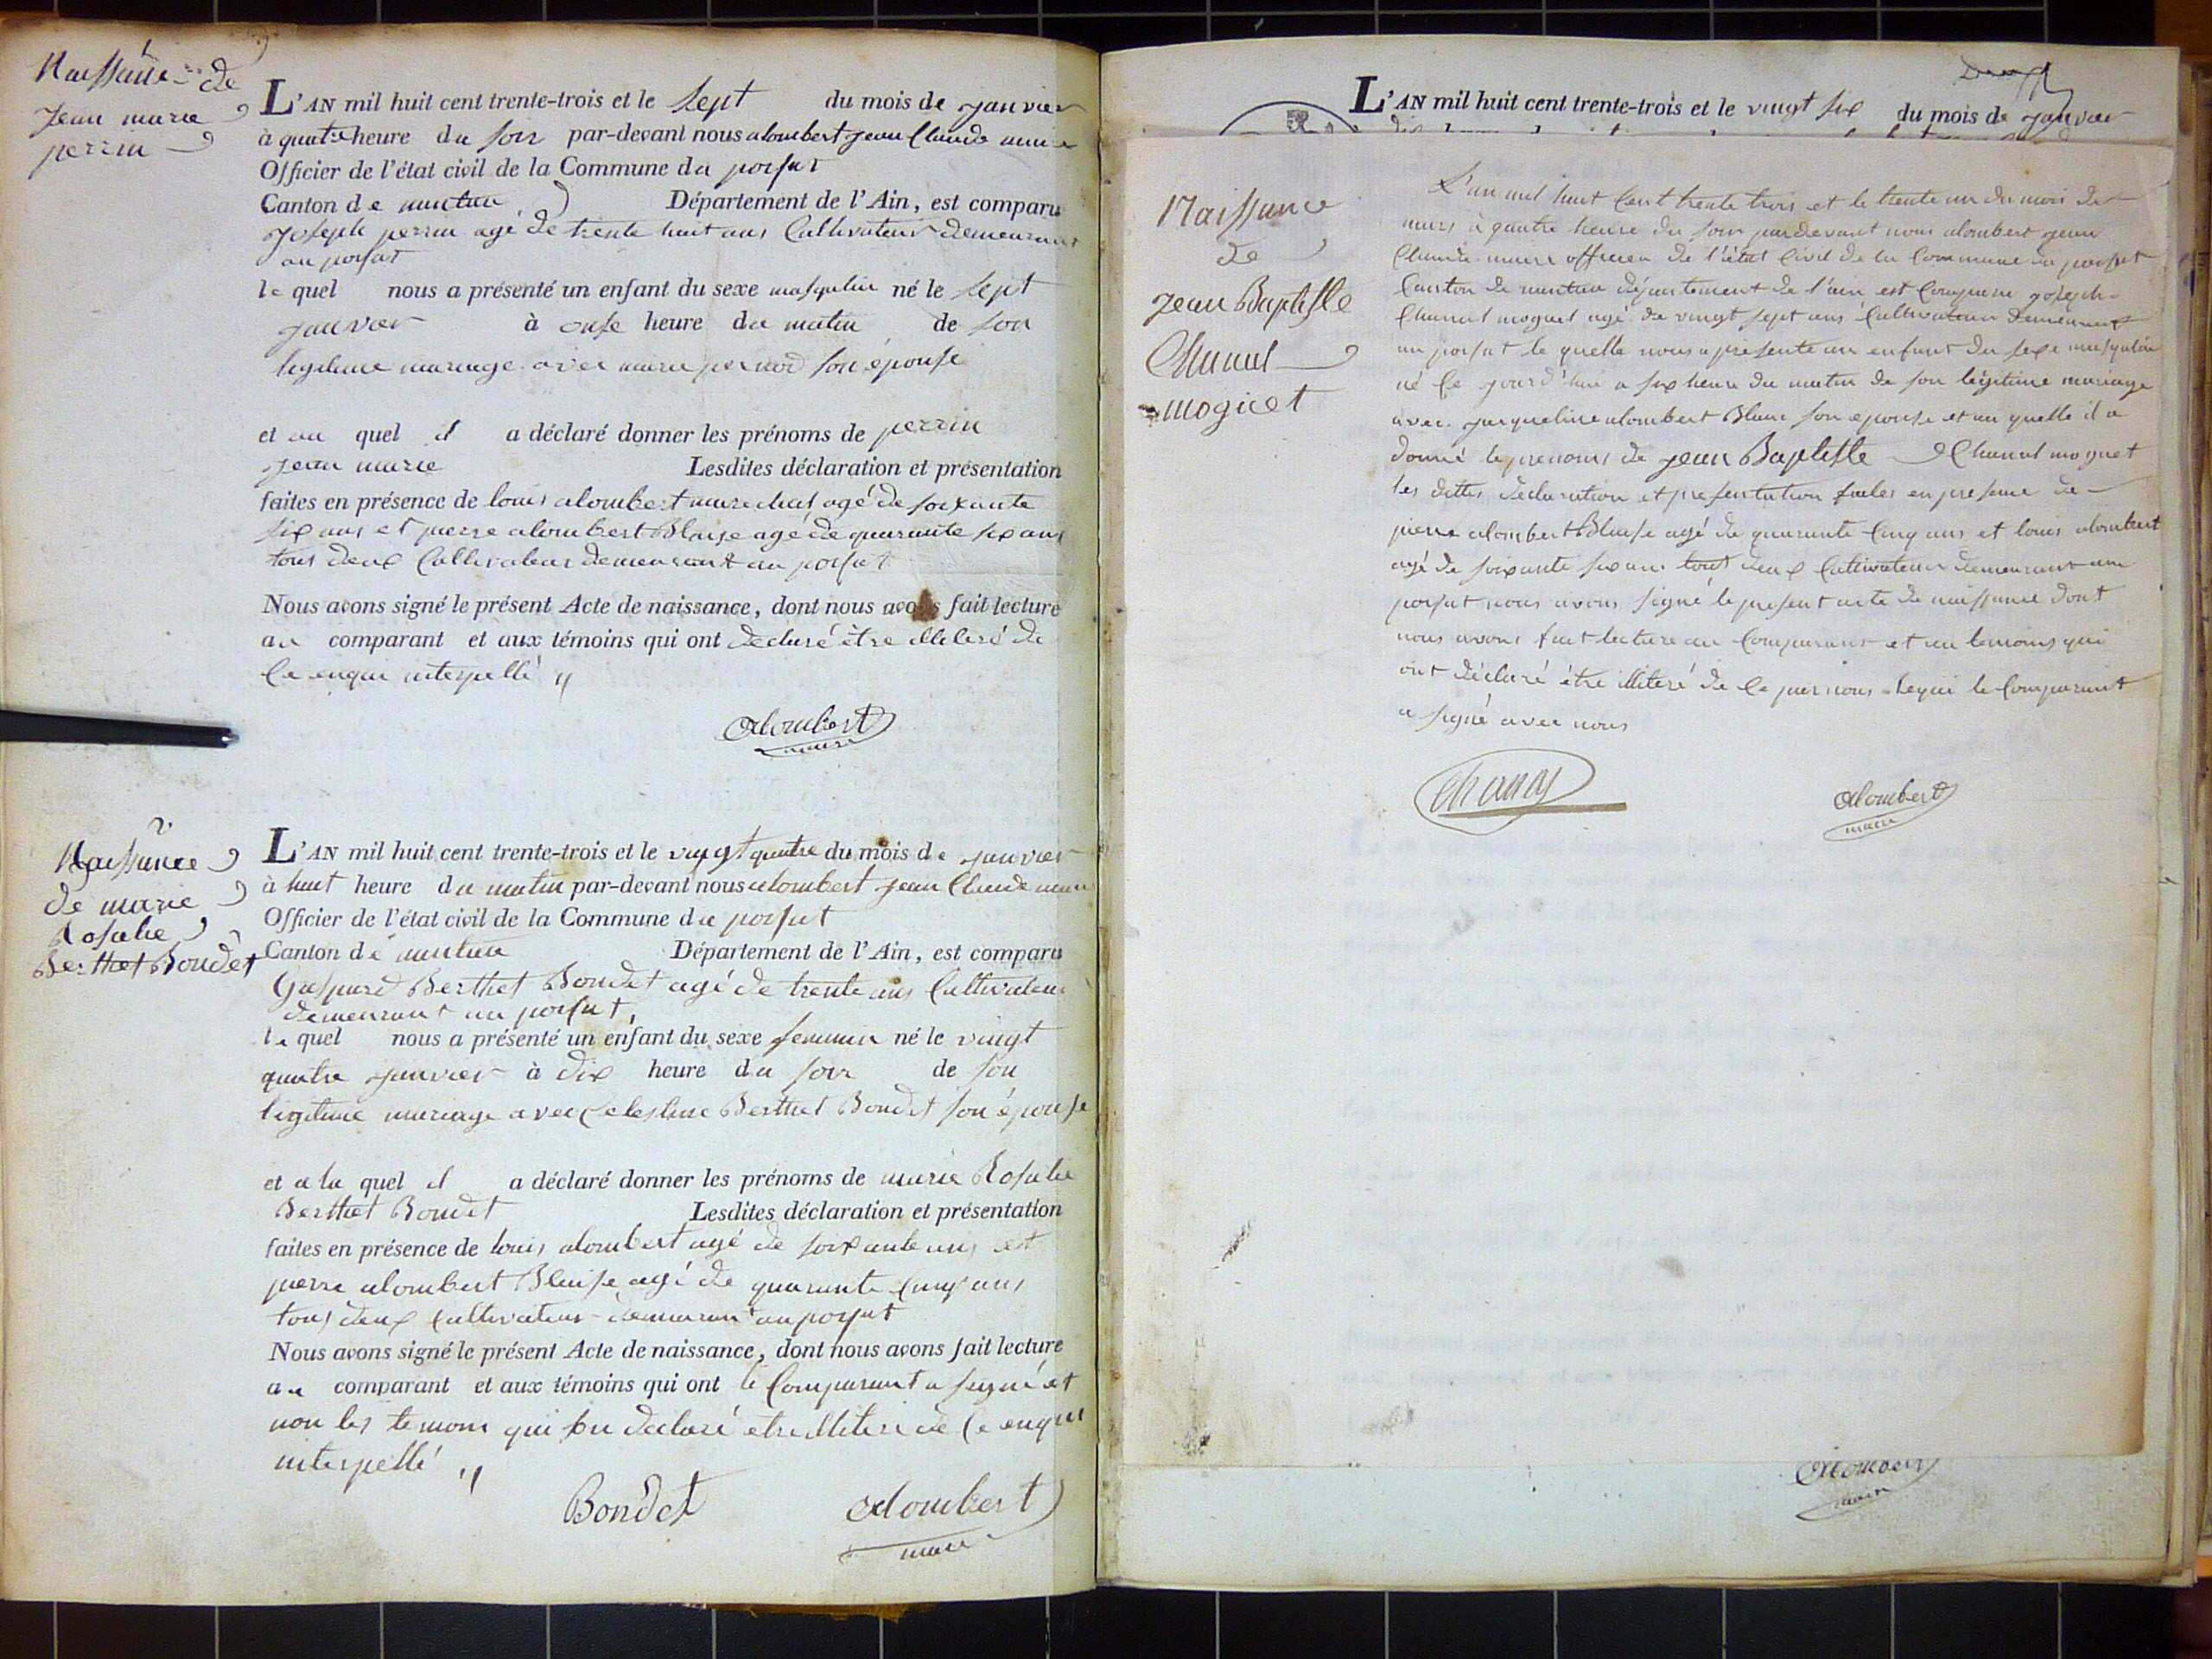 Naissance de
Jean marie
perrin
L'AN mil huit cent trente-trois et le sept du mois de janvier
à quatre heure du soir par-devant nous alombert jean Claude maire
Officier de l'état civil de la Commune du poisat
Canton de nantua Département de l'Ain, est comparu
Joseph perrin agé de trente huit ans Cultivateur demeurant
au poisat
le quel nous a présenté un enfant du sexe masqulin né le sept
janvier à onse heure du matin de son
legitime mariage avec marie pernod son épouse
et au quel il a déclaré donner les prénoms de perrin
jean marie Lesdites déclaration et présentation
faites en présence de louis alombert marechal agé de soixante
six ans et pierre alombert Blaise agé de quarante six ans
tous deux Cultivateur demeurant au poisat
Nous avons signé le présent Acte de naissance, dont nous avons fait lecture
au comparant et aux témoins qui ont declaré être illiteré de
Ce enquis interpellé
alombert
maire
2.
Naissance
de marie
Rosalie
Berthet Bondet
L'AN mil huit cent trente-trois et le vingt quatre du mois de janvier
à huit heure du matin par-devant nous alombert jean Claude maire
Officier de l'état civil de la Commune du poisat
Canton de nantua Département de l'Ain, est comparu
Gaspard Berthet Bondet agé de trente ans Cultivateur
demeurant au poisat
le quel nous a présenté un enfant du sexe feminin né le vingt
quatre janvier à dix heure du soir de son
legitime mariage avec Celestine Berthet Bondet son épouse
et a la quel il a déclaré donner les prénoms de marie Rosalie
Berthet Bondet Lesdites déclaration et présentation
faites en présence de louis alombert agé de soixante ans et
pierre alombert Blaise agé de quarante Cinq ans
tous deux Cultivateur demeurant au poisat
Nous avons signé le présent Acte de naissance, dont nous avons fait lecture
au comparant et aux témoins qui ont le Comparant a signé et
non les temoin qui on declaré etre illiteré de Ce enquis
interpellé
Bondet alombert
maire
L'AN mil huit cent trente-trois et le vingt six du mois de janvier
Naissance
de
jean Baptiste
Chanal
moguet
L'an mil huit Cent trente trois et le trente un du mois de
mars à quatre heure du soir pardevant nous alombert jean
Claude maire officier de l'état Civil de la Commune du poisat
Canton de nantua département de l'ain est Comparu joseph
Chanal moguet agé de vingt sept ans Cultivateur demeurant
au poisat le quelle nous a presente un enfant du sexe masqulin
né Ce jourd'hui a six heure du matin de son légitime mariage
avec jacqueline alombert Blanc son epouse et au quelle il a
donné le prenoms de jean Baptiste Chanal moguet
les dittes declaration et presentation faites en presence de
pierre alombert Blaise agé de quarante Cinq ans et louis alombert
agé de soixante six ans tout deux Cultivateur demeurant au
poisat nous avons signé le present acte de naissance dont
nous avons fait lecture au Comparant et au temoins qui
ont déclaré être illiteré de Ce par nous requi le Comparant
a signé avec nous
Chanal alombert
maire
alombert
maire